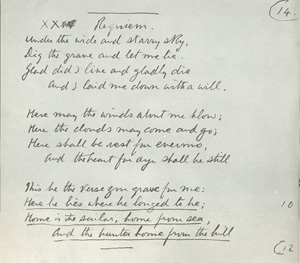 14.
XX Requiem.
Under the wide and starry sky,
Dig the grave and let me lie.
Glad did I live and gladly die
And I laid me down with a will.
Here may the winds about me blow;
Here the clouds may come and go;
Here shall be rest for evermo,
And the heart for aye shall be still
This be the verse you grave for me:
Here he lies where he longed to be;
10
Home is the sailor, home from sea,
And the hunter home from the hill
12